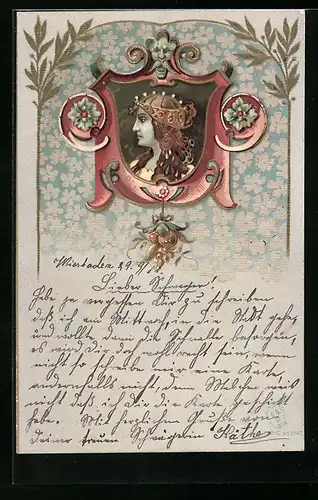 Wiesbaden 29. 9.
Lieber Schwager!
Habe ja vergessen Dir zu schreiben
daß ich am Mittwoch in die Stadt gehe
und wollte dann die Schnalle besorgen,
es wird Dir doch wohl recht sein, wenn
nicht so schreibe mir eine Karte,
andernfalls nicht, denn Malchen weiß
nicht daß ich Dir die Karte geschickt
habe. Mit herzlichen Gruße von
deiner treuen Schwägerin Käthe